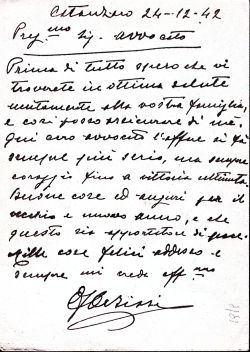 Catanzaro 24-12-42
Preg.mo Sig. avvocato
Prima di tutto spero che vi
troverete in ottima salute
unitamente alla vostra famiglia,
e così posso assicurare di me,
qui caro avvocato l'affare si fà
sempre più serio, ma sempre
coraggio fino a vittoria ultimata.
Buone cose ed auguri per il
vecchio e nuovo anno, e che
questo sia apportatore di
mille cose felici addosso e
sempre mi creda aff.mo